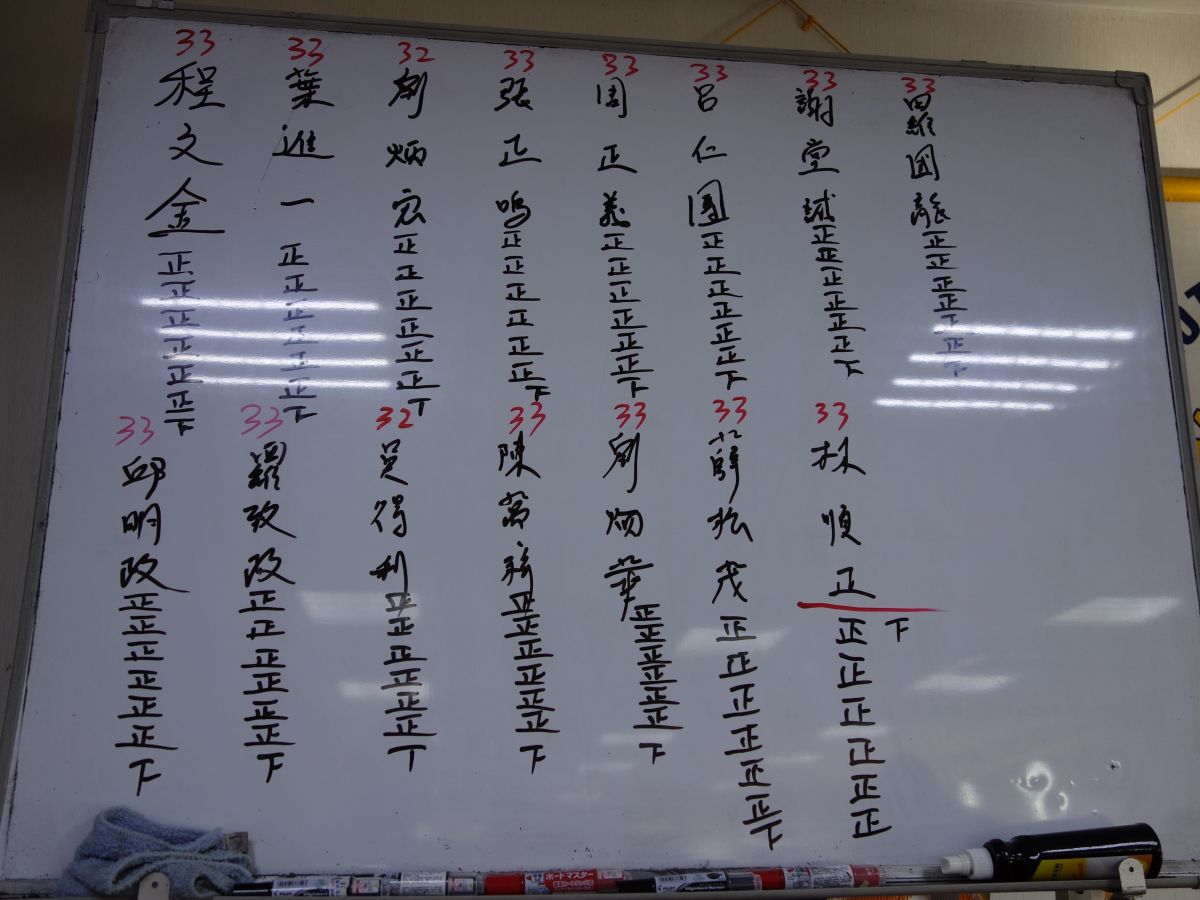 33
程文金
正正正正正正下
33
葉進一
正正正正正正下
32
劉炳宏
正正正正正正丅
33
張正鳴
正正正正正正下
33
周正義
正正正正正正下
33
呂仁團
正正正正正正下
33
謝堂誠
正正正正正正下
33
羅国龍
正正正正正正下
33
邱明政
正正正正正正下
33
羅致政
正正正正正正下
32
吳得利
正正正正正正丅
33
陳萬
正正正正正正下
33
劉炳華
正正正正正正下
33
薛松茂
正正正正正正下
33
林順正
正正正正正正下
ボードマスター
PILOT
PILOT